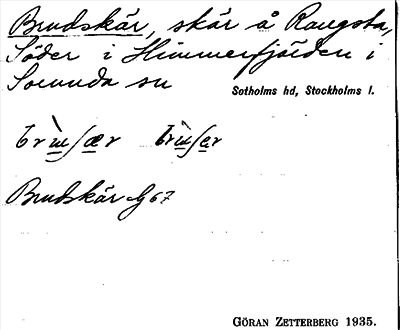 Brudskär, skär å Rangsta,
Söder i Himmerfjärden i
Sorunda sn
Sotholms hd, Stockholms l.
Brudskär G 67
GÖRAN ZETTERBERG 1935.